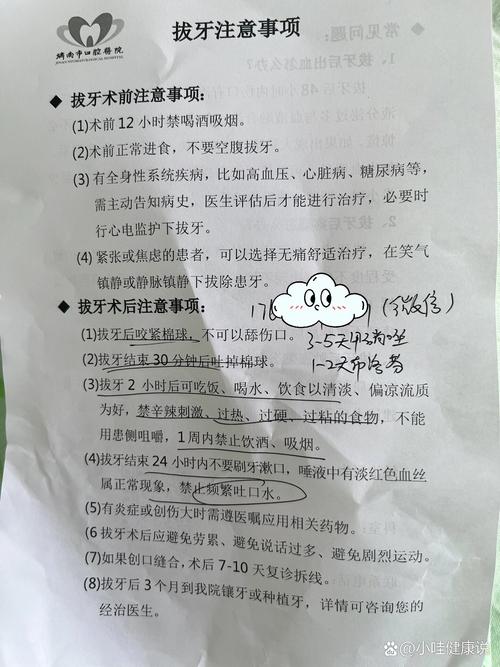 济南市口腔医院
JINAN STOMATOLOGICAL HOSPITAL
拔牙注意事项
◆ 拔牙术前注意事项：
(1)术前 12 小时禁喝酒吸烟。
(2)术前正常进食，不要空腹拔牙。
(3) 有全身性系统疾病，比如高血压、心脏病、糖尿病等，
需主动告知病史，医生评估后才能进行治疗，必要时
行心电监护下拔牙。
(4) 紧张或焦虑的患者，可以选择无痛舒适治疗，在笑气
镇静或静脉镇静下拔除患牙。
◆ 拔牙术后注意事项：
17
(微信)
(1)拔牙后咬紧棉球，不可以舔伤口。
3-5天
(2)拔牙结束 30 分钟后吐掉棉球。
1-2天
(3)拔牙 2 小时后可吃饭、喝水、饮食以清淡、偏凉流质
为好，禁辛辣刺激、过热、过硬、过粘的食物，不能
用患侧咀嚼，1 周内禁止饮酒、吸烟。
(4)拔牙结束 24 小时内不要刷牙漱口，唾液中有淡红色血丝
属正常现象，禁止频繁吐口水。
(5)有炎症或创伤大时需遵医嘱应用相关药物。
(6 拔牙术后应避免劳累、避免说话过多、避免剧烈运动。
(7)如果创口缝合，术后 7-10 天复诊拆线。
(8)拔牙后 3 个月到我院镶牙或种植牙，详情可咨询您的
经治医生。
小哇健康说